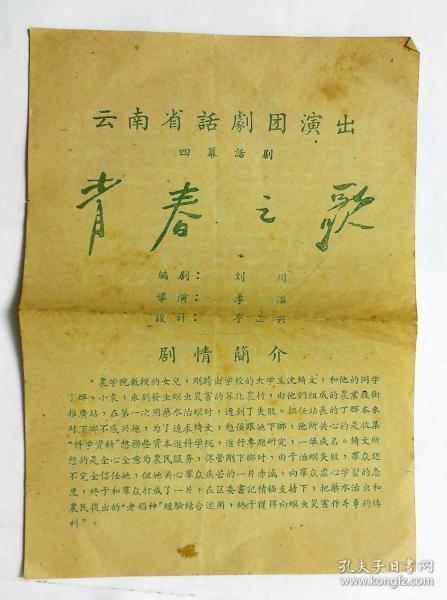 云南省話劇团演出
四幕話剧
青春之歌
編剧：刘川
導演：季溫
設計：李正兴
剧情簡介
“農学院教授的女兒，剛跨出学校的大学生沈綺文，和他的同学
丁輝、小袁，來到發生螟虫災害的苏北農村，由他們組成的農業技術
推廣站，在第一次用藥水治螟时，遭到了失敗。担任站長的丁輝本來
对下鄉不感兴趣，为了追求綺文，勉强跟她下鄉，他所关心的是收集
“科学資料”想撈些資本進科学院，進行專題研究，一举成名。綺文所
想的是全心全意为農民服务，侭管剛下鄉时，由于治螟失敗，羣众还
不完全信任她，但她关心羣众疾苦的一片赤誠，向羣众虛心学習的态
度，終于和羣众打成了一片，在区委書記積極支持下，把藥水治虫和
農民提出的“老稻种”經驗結合运用，終于獲得向螟虫災害作斗爭的勝
利”。
孔夫子旧书网
www.kongfz.com